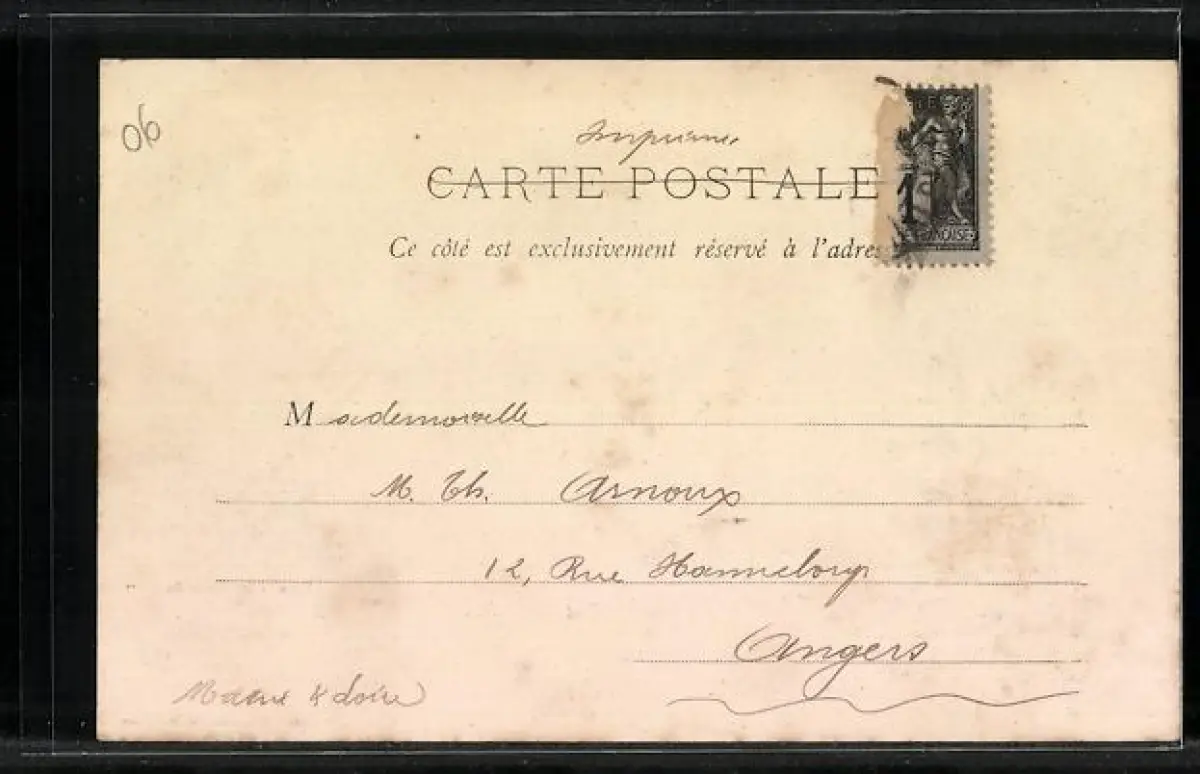 06
Imprimés
CARTE POSTALE
Ce côté est exclusivement réservé à l'adres
1
Mademoiselle
M. Th. Arnoux
12, Rue Hanneloup
Angers
Maine & Loire